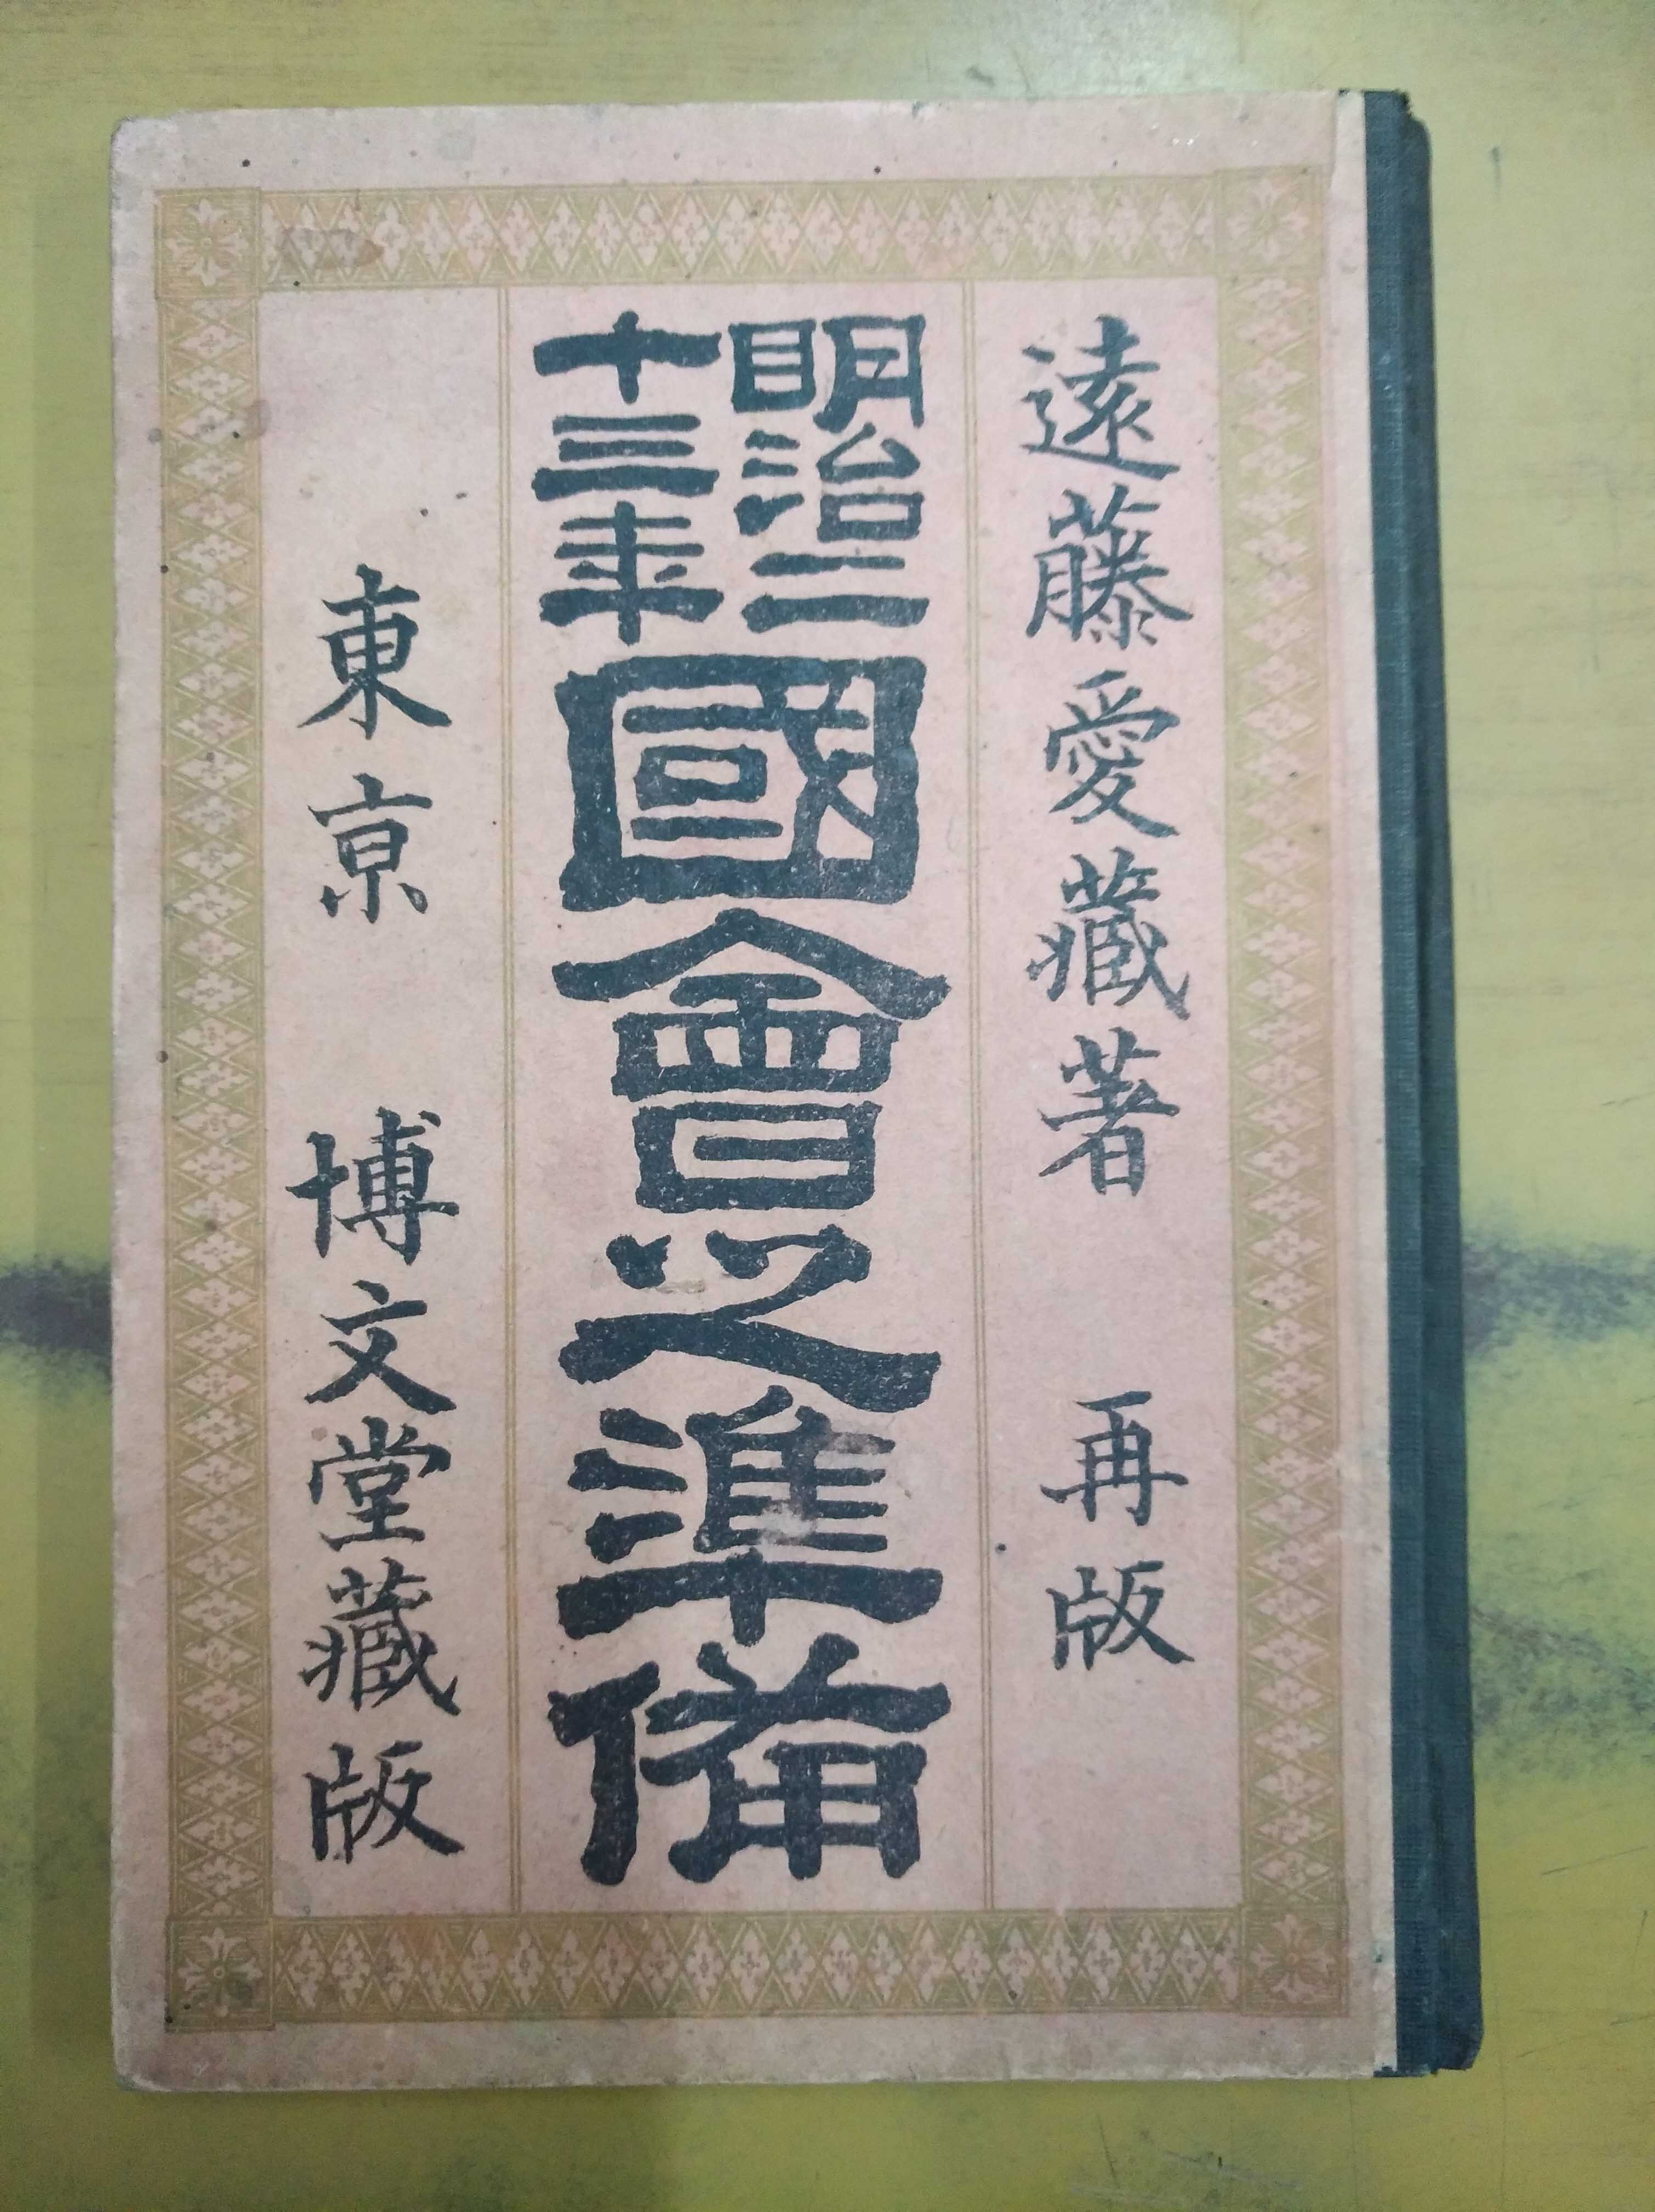 遠藤愛藏著 再版
明治二
十三年
國會之準備
東京 博文堂藏版